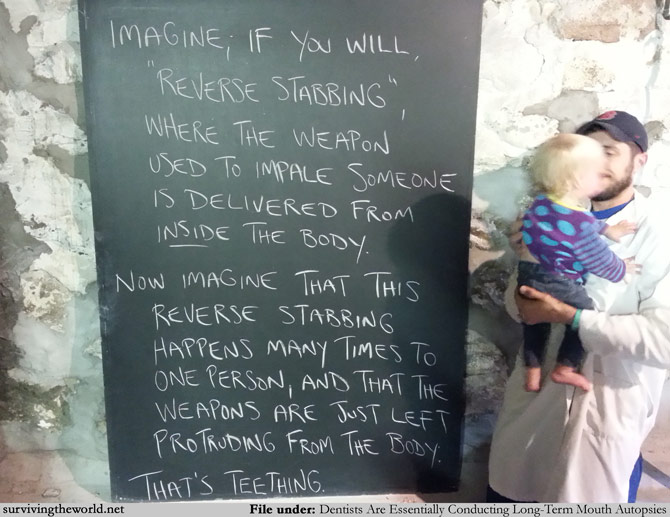 IMAGINE, IF YOU WILL,
"REVERSE STABBING",
WHERE THE WEAPON
USED TO IMPALE SOMEONE
IS DELIVERED FROM
INSIDE THE BODY.
NOW IMAGINE THAT THIS
REVERSE STABBING
HAPPENS MANY TIMES TO
ONE PERSON, AND THAT THE
WEAPONS ARE JUST LEFT
PROTRUDING FROM THE BODY.
THAT'S TEETHING.
survivingtheworld.net File under: Dentists Are Essentially Conducting Long-Term Mouth Autopsies